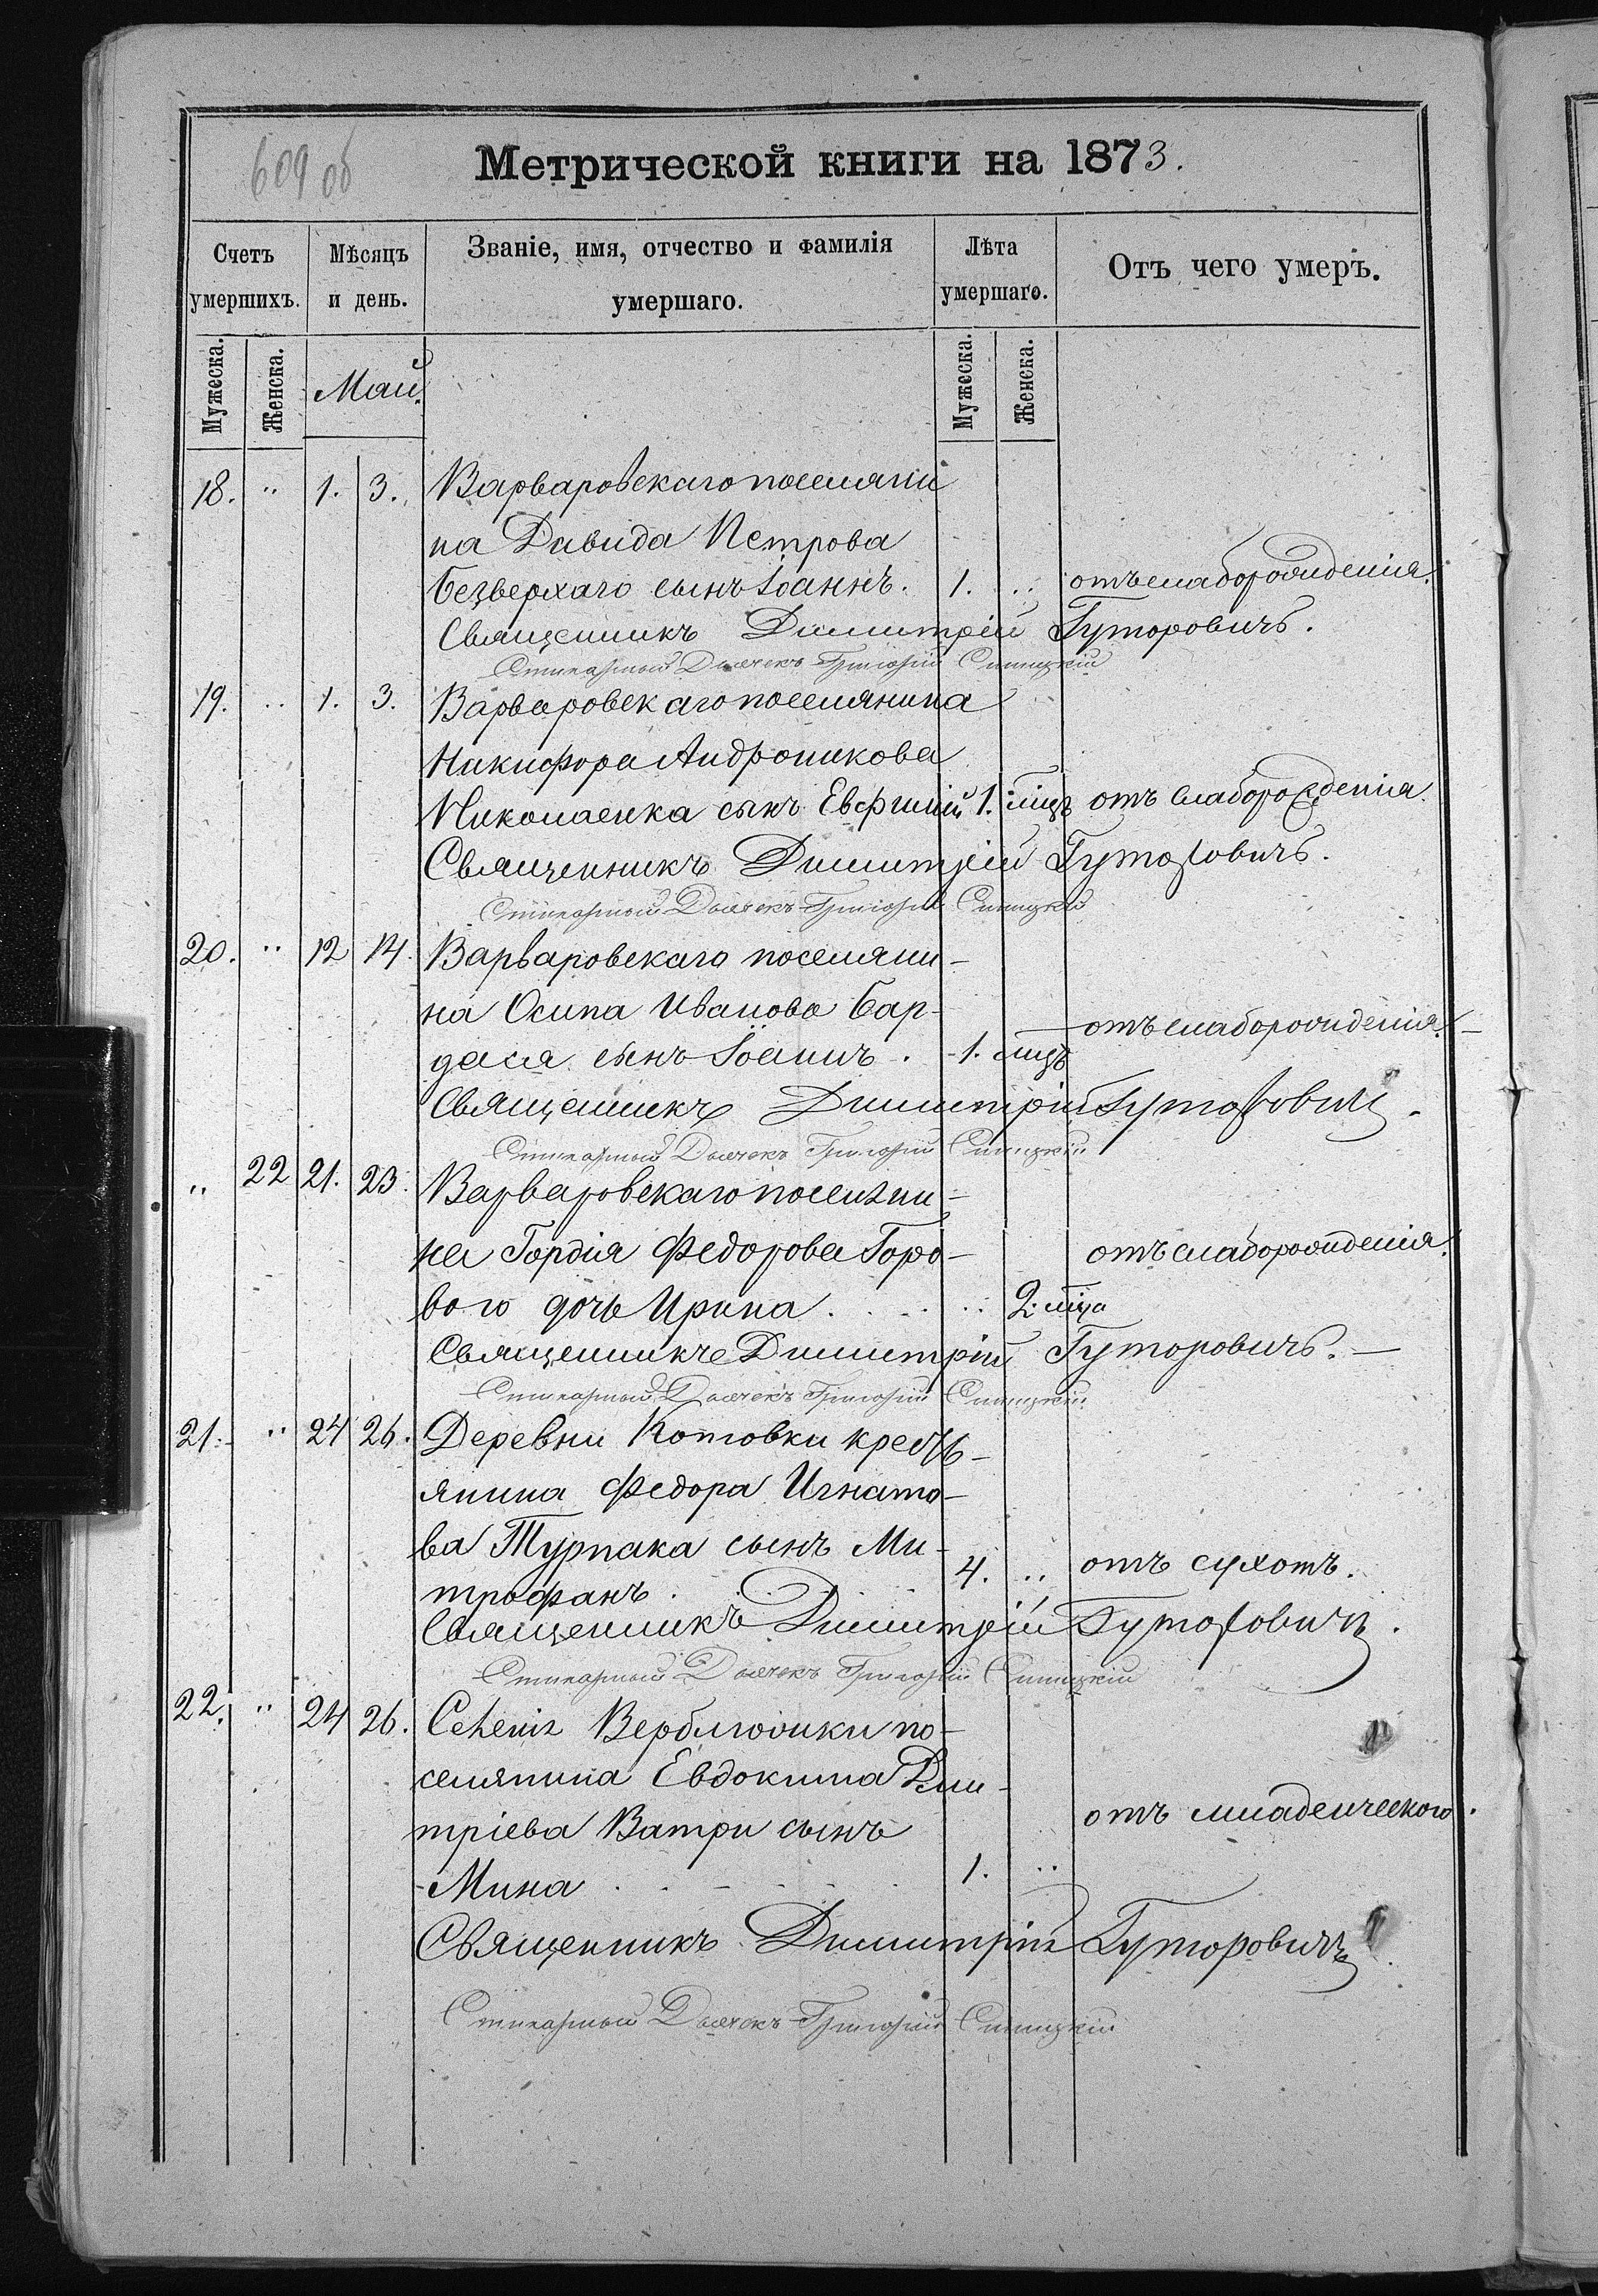 609 об
Метрической книги на 1873.
Счетъ умершихъ.
Мѣсяцъ и день.
Званіе, имя, отчество и фамилія умершаго.
Лѣта умершаго.
Отъ чего умеръ.
Мужеска. Женска. Май. Мужеска. Женска.
18. " 1. 3. Варваровскаго поселяни
на Давида Петрова
Безверхаго сынъ Іоаннъ. 1. .. отъ слаборожденія.
Священникъ Димитрій Гуторовичъ.
Стихарный Дьячекъ Григорій Синицкій
19. .. 1. 3. Варваровскаго поселянина
Никифора Андроникова
Николаенка сынъ Евфимій 1. мцъ отъ слаборожденія.
Священникъ Димитрій Гуторовичъ.
Стихарный Дьячекъ Григорій Синицкій
20. " 12 14. Варваровскаго поселяни-
на Осипа Иванова Бар-
даса сынъ Іоаннъ. 1. мцъ отъ слаборожденія.
Священникъ Димитрій Гуторовичъ.
Стихарный Дьячекъ Григорій Синицкій
" 22 21. 23. Варваровскаго поселяни-
на Гордія Федорова Горо-
вого дочь Ирина. .. 2. мца отъ слаборожденія.
Священникъ Димитрій Гуторовичъ.
Стихарный Дьячекъ Григорій Синицкій
21. " 24 26. Деревни Котовки кресть-
янина Федора Игнато-
ва Турпака сынъ Ми-
трофанъ. 4. .. отъ сухотъ.
Священникъ Димитрій Гуторовичъ.
Стихарный Дьячекъ Григорій Синицкій
22. " 24 26. Селенія Верблюжки по-
селянина Евдокима Дми-
тріева Ватри сынъ
Мина 1. .. отъ младенческого.
Священникъ Димитрій Гуторовичъ.
Стихарный Дьячекъ Григорій Синицкій